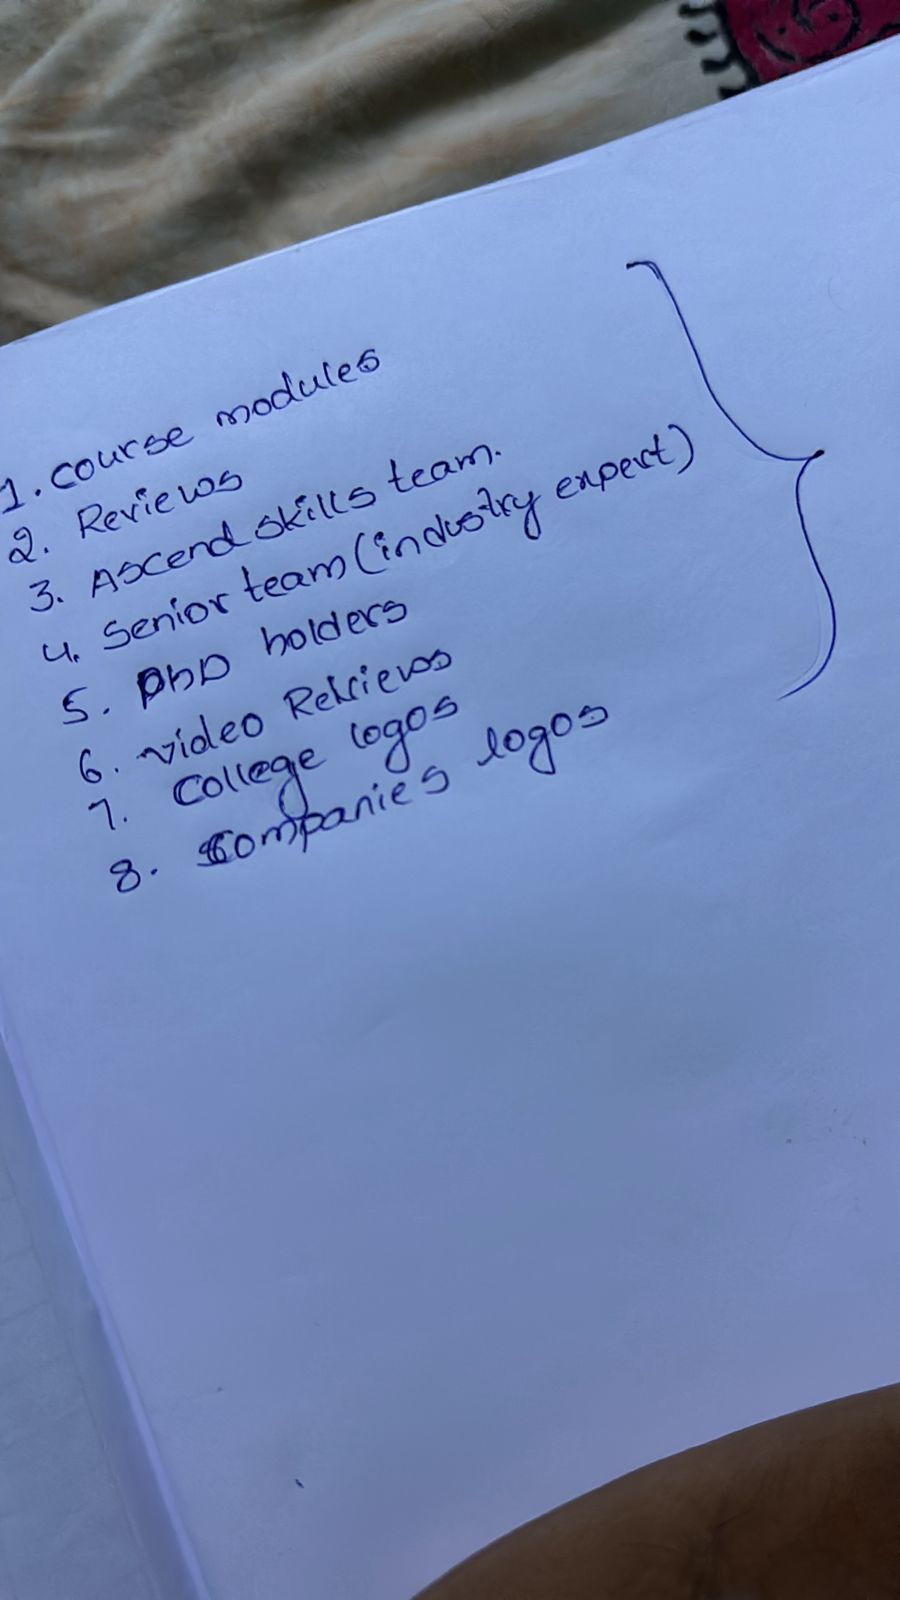 1. course modules
2. Reviews
3. Ascend skills team.
4. Senior team (industry expert)
5. PhD holders
6. video Reviews
7. College logos
8. Companies logos